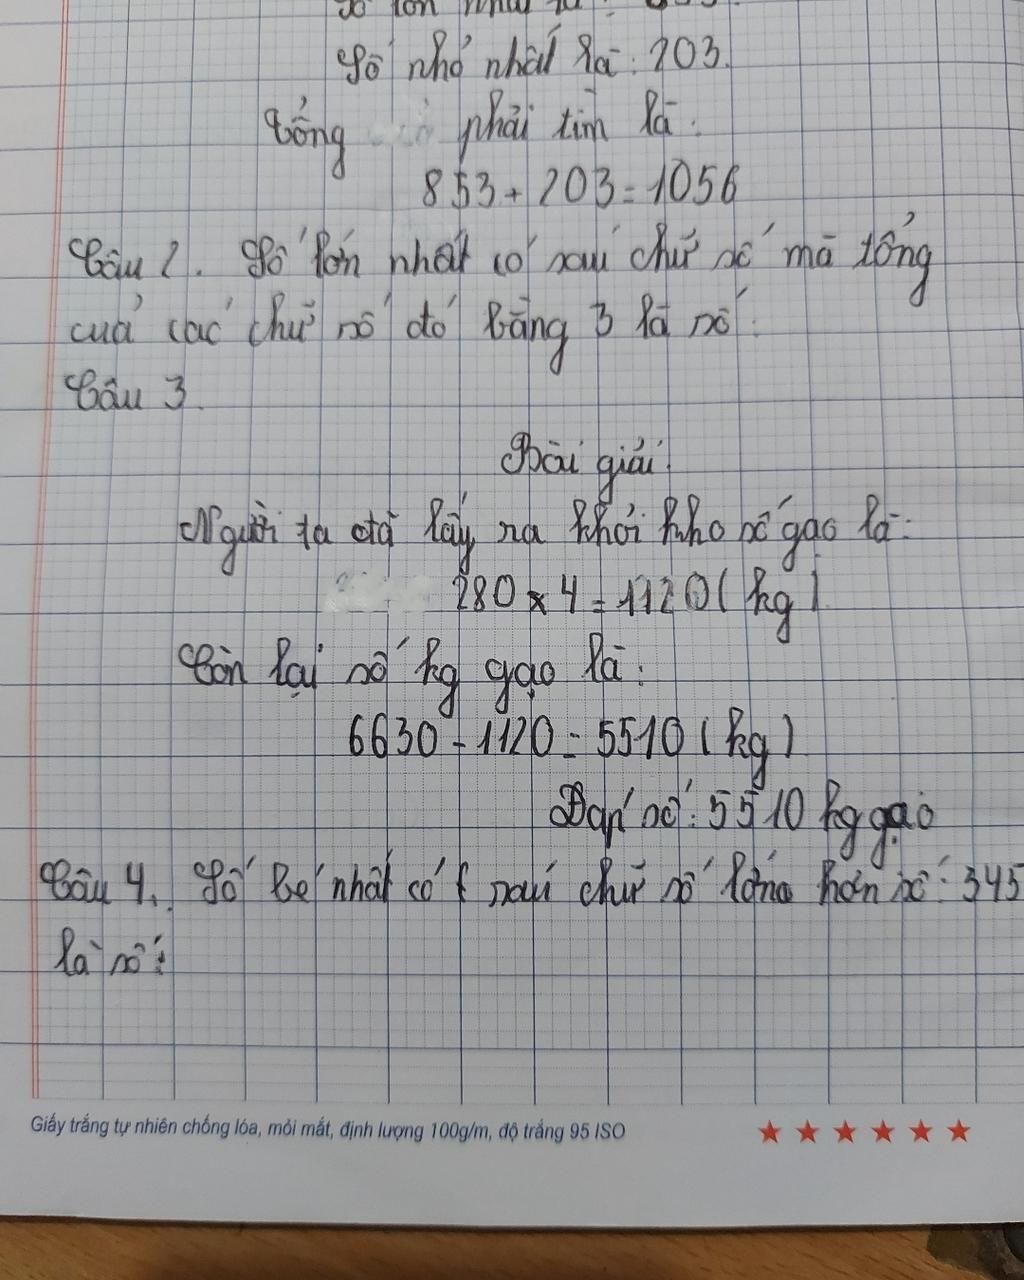 Số nhỏ nhất là: 203.
Tổng phải tìm là:
853 + 203 = 1056
Câu 2. Số lớn nhất có sáu chữ số mà tổng
của các chữ số đó bằng 3 là số:
Câu 3.
Bài giải
Người ta đã lấy ra khỏi kho số gạo là:
280 x 4 = 1120 (kg)
Còn lại số kg gạo là:
6630 - 1120 = 5510 (kg)
Đáp số: 5510 kg gạo
Câu 4. Số bé nhất có sáu chữ số lớn hơn số: 345
là số:
Giấy trắng tự nhiên chống lóa, mỏi mắt, định lượng 100g/m, độ trắng 95 ISO